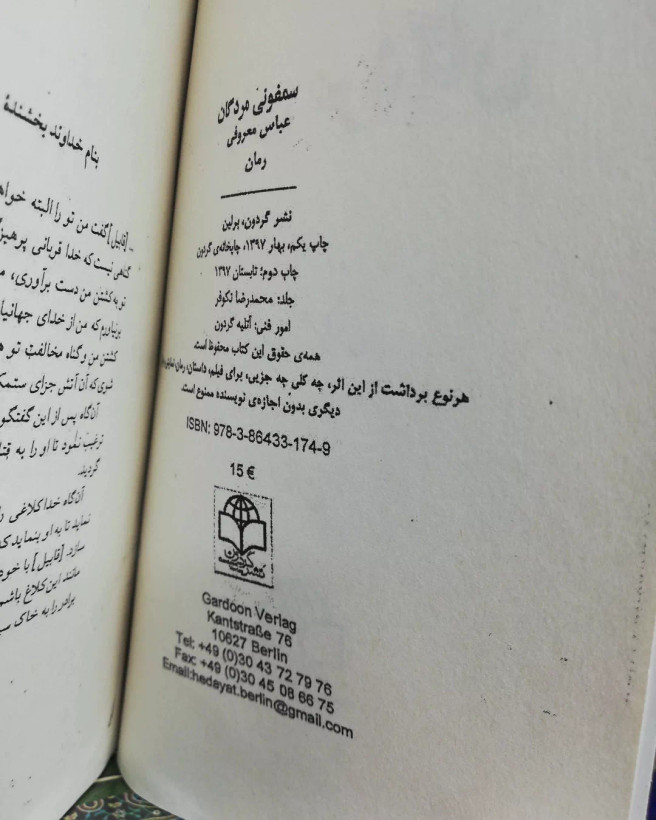 سمفونی مردگان
عباس معروفی
رمان
نشر گردون، برلین
چاپ یکم، بهار ۱۳۹۷، چاپخانه‌ی گردون
چاپ دوم؛ تابستان ۱۳۹۷
جلد: محمدرضا نکوفر
امور فنی: آتلیه گردون
همه‌ی حقوق این کتاب محفوظ است.
هرنوع برداشت از این اثر، چه کلی چه جزیی، برای فیلم، داستان، رمان،
دیگری بدون اجازه‌ی نویسنده ممنوع است.
ISBN: 978-3-86433-174-9
15 €
Gardoon Verlag
Kantstraße 76
10627 Berlin
Tel: +49 (0)30 43 72 79 76
Fax: +49 (0)30 45 08 66 75
Email:hedayat.berlin@gmail.com
بنام خداوند بخشندهٔ
ـ [قابیل] گفت من تو را البته
گناهی نیست که خدا قربانی
تو به کشتن من دست برآوری،
برنیاورم که من از خدای
کشتن من و گناه مخالفت تو
که آن آتش جزای
آن‌گاه پس از این
ترغیب نمود تا او را به
گردید.
آن‌گاه خدا کلاغی
نماید تا به او بنماید
سازد. [قابیل] با خود
مانند این کلاغ باشم
برادر را به خاک